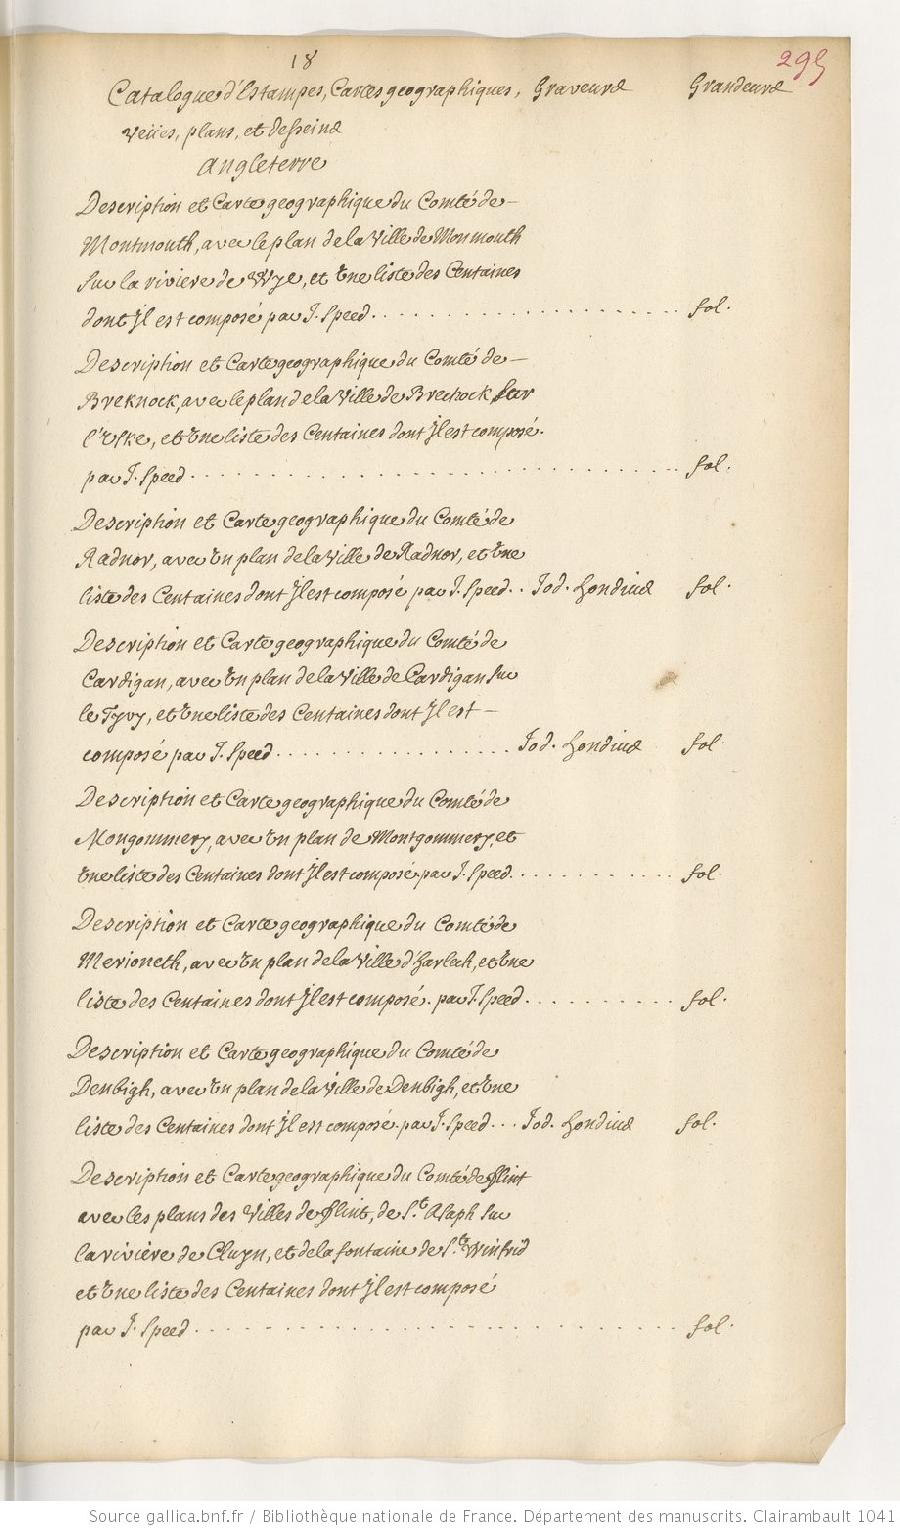 18
295
Catalogue d'Estampes, Cartes geographiques, Graveurs Grandeurs
veües, plans, et desseins
Angleterre
Description et Carte geographique du Comté de
Montmouth, avec le plan de la Ville de Monmouth
sur la riviere de Wye, et Une liste des Centaines
dont Il est composé par J. Speed. fol.
Description et Carte geographique du Comté de
Breknock, avec le plan de la Ville de Brecknock sur
l'Uske, et Une liste des Centaines dont Il est composé.
par J. Speed fol.
Description et Carte geographique du Comté de
Radnor, avec Un plan de la Ville de Radnor, et Une
liste des Centaines dont Il est composé par J. Speed. Jod. Hondius fol.
Description et Carte geographique du Comté de
Cardigan, avec Un plan de la Ville de Cardigan sur
le Tyvy, et Une liste des Centaines dont Il est
composé par J. Speed Jod. Hondius fol
Description et Carte geographique du Comté de
Mongommery, avec Un plan de Montgommery, et
Une liste des Centaines dont Il est composé par J. Speed. fol
Description et Carte geographique du Comté de
Merioneth, avec Un plan de la Ville d'Harlech, et Une
liste des Centaines dont Il est composé. par J. Speed. fol.
Description et Carte geographique du Comté de
Denbigh, avec Un plan de la Ville de Denbigh, et Une
liste des Centaines dont Il est composé. par J. Speed. Jod. Hondius fol.
Description et Carte geographique du Comté de flint
avec les plans des Villes de flint, de St. Asaph sur
la rivière de Cluyn, et de la fontaine de Ste Winfrid
et Une liste des Centaines dont Il est composé
par J. Speed fol.
Source gallica.bnf.fr / Bibliothèque nationale de France. Département des manuscrits. Clairambault 1041